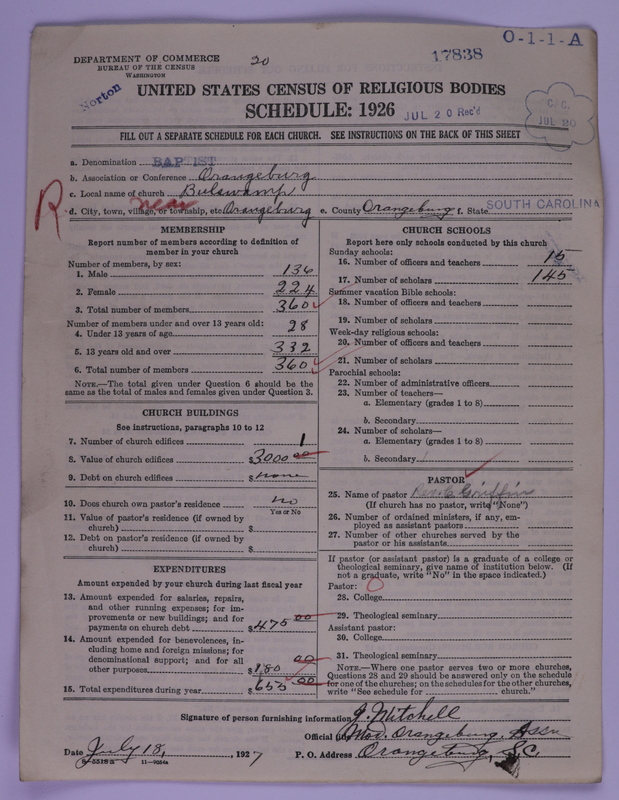 O-1-1-A
DEPARTMENT OF COMMERCE
BUREAU OF THE CENSUS
WASHINGTON
20
17838
Norton
UNITED STATES CENSUS OF RELIGIOUS BODIES
SCHEDULE: 1926
JUL 20 Rec'd
C. C.
JUL 20
FILL OUT A SEPARATE SCHEDULE FOR EACH CHURCH. SEE INSTRUCTIONS ON THE BACK OF THIS SHEET
a. Denomination BAPTIST
b. Association or Conference Orangeburg
c. Local name of church Bulswamp
R near
d. City, town, village, or township, etc. Orangeburg e. County Orangeburg f. State SOUTH CAROLINA
MEMBERSHIP
Report number of members according to definition of
member in your church
Number of members, by sex:
1. Male 136
2. Female 224
3. Total number of members 360
Number of members under and over 13 years old:
4. Under 13 years of age 28
5. 13 years old and over 332
6. Total number of members 360
NOTE.—The total given under Question 6 should be the
same as the total of males and females given under Question 3.
CHURCH BUILDINGS
See instructions, paragraphs 10 to 12
7. Number of church edifices 1
8. Value of church edifices $3000 00
9. Debt on church edifices $ none
10. Does church own pastor's residence no
Yes or No
11. Value of pastor's residence (if owned by
church) $
12. Debt on pastor's residence (if owned by
church) $
EXPENDITURES
Amount expended by your church during last fiscal year
13. Amount expended for salaries, repairs,
and other running expenses; for im-
provements or new buildings; and for
payments on church debt $475 00
14. Amount expended for benevolences, in-
cluding home and foreign missions; for
denominational support; and for all
other purposes $180 00
15. Total expenditures during year $655 00
CHURCH SCHOOLS
Report here only schools conducted by this church
Sunday schools:
16. Number of officers and teachers 15
17. Number of scholars 145
Summer vacation Bible schools:
18. Number of officers and teachers
19. Number of scholars
Week-day religious schools:
20. Number of officers and teachers
21. Number of scholars
Parochial schools:
22. Number of administrative officers
23. Number of teachers—
a. Elementary (grades 1 to 8)
b. Secondary
24. Number of scholars—
a. Elementary (grades 1 to 8)
b. Secondary
PASTOR
25. Name of pastor Rev. C Griffin
(If church has no pastor, write "None")
26. Number of ordained ministers, if any, em-
ployed as assistant pastors
27. Number of other churches served by the
pastor or his assistants
If pastor (or assistant pastor) is a graduate of a college or
theological seminary, give name of institution below. (If
not a graduate, write "No" in the space indicated.)
Pastor: O
28. College
29. Theological seminary
Assistant pastor:
30. College
31. Theological seminary
NOTE.—Where one pastor serves two or more churches,
Questions 28 and 29 should be answered only on the schedule
for one of the churches; on the schedules for the other churches,
write "See schedule for church."
Signature of person furnishing information J. Mitchell
Official title Mod. Orangeburg, Assn
Date July 18, 1927 P. O. Address Orangeburg, S.C.
8-5518a 11-9054a